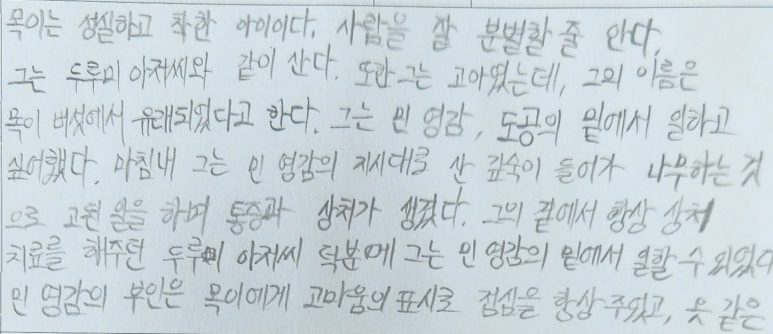 목이는 성실하고 착한 아이이다. 사람을 잘 분별할 줄 안다.
그는 두루미 아저씨와 같이 산다. 또한 그는 고아였는데, 그의 이름은
목이 버섯에서 유래되었다고 한다. 그는 민 영감, 도공의 밑에서 일하고
싶어했다. 마침내 그는 민 영감의 지시대로 산 깊숙이 들어가 나무하는 것
으로 고된 일을 하며 통증과 상처가 생겼다. 그의 곁에서 항상 상처
치료를 해주던 두루미 아저씨 덕분에 그는 민 영감의 밑에서 일할 수 있었다
민 영감의 부인은 목이에게 고마움의 표시로 점심을 항상 주었고, 옷 같은